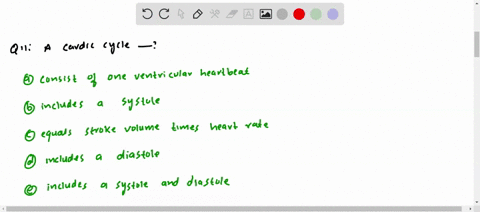 Q11: A cardic cycle —?
a consist of one ventricular heartbeat
b includes a systole
c equals stroke volume times heart rate
d includes a diastole
e includes a systole and diastole